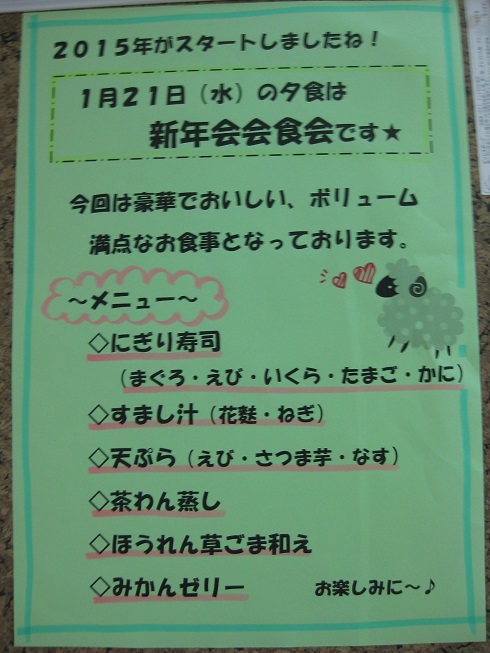 ２０１５年がスタートしましたね！
１月２１日（水）の夕食は
新年会会食会です★
今回は豪華でおいしい、ボリューム
満点なお食事となっております。
～メニュー～
◇にぎり寿司
（まぐろ・えび・いくら・たまご・かに）
◇すまし汁（花麩・ねぎ）
◇天ぷら（えび・さつま芋・なす）
◇茶わん蒸し
◇ほうれん草ごま和え
◇みかんゼリー　お楽しみに～♪